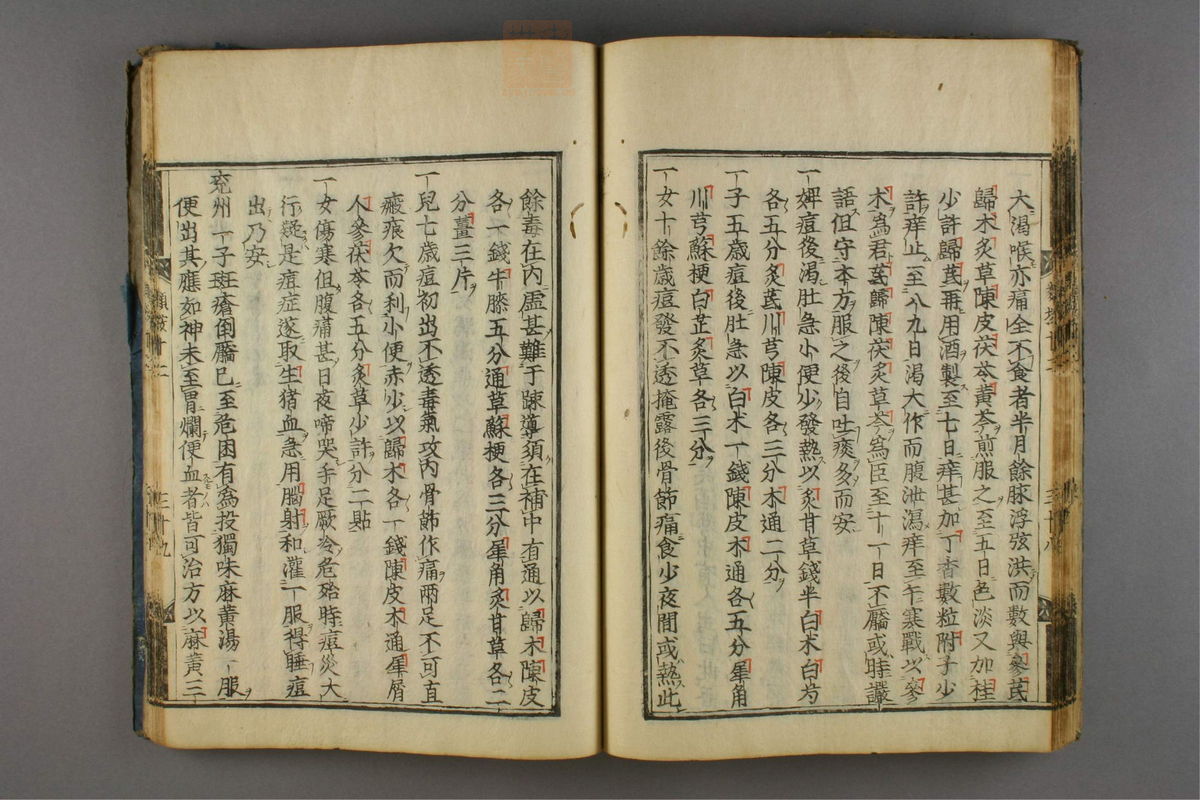 大渴喉亦痛全不食者半月餘脉浮弦洪而數與參芪
歸朮炙草陳皮茯苓黃芩煎服之至五日色淡又加桂
少許歸芪再用酒製至七日痒甚加丁香數粒附子少
許痒止至八九日渴大作而腹泄瀉痒至午寒戰以參
朮爲君芪歸陳茯炙草芩爲臣至十一日不靨或時譫
語但守本方服之後自吐痰多而安
一婢痘後渴肚急小便少發熱以炙甘草錢半白朮白芍
各五分炙芪川芎陳皮各三分木通二分
一子五歲痘後肚急以白朮一錢陳皮木通各五分犀角
川芎蘇梗白芷炙草各三分
一女十餘歲痘發不透掩露後骨節痛食少夜間或熱此
餘毒在內虛甚難于踈導須在補中有通以歸朮陳皮
各一錢牛膝五分通草蘇梗各三分犀角炙甘草各二
分薑三片
一兒七歲痘初出不透毒氣攻內骨節作痛兩足不可直
瘢痕欠而利小便赤少以歸朮各一錢陳皮木通犀屑
人參茯苓各五分炙草少許分二貼
一女傷寒但腹痛甚日夜啼哭手足厥冷危殆時痘災大
行疑是痘症遂取生猪血急用腦射和灌一服得睡痘
出乃安
兗州一子斑瘡倒靨已至危困有爲投獨味麻黃湯一服
便出其應如神未至胃爛便血者皆可治方以麻黃三
三十八
三十九